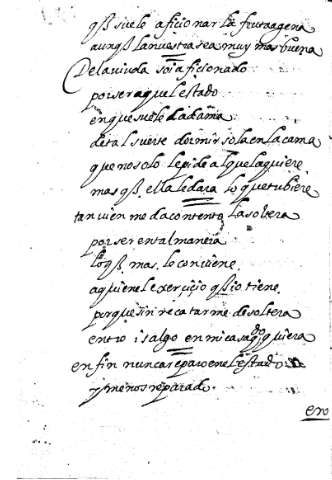 qȝ suele aficionar la fruta agena
aunqȝ la nuestra sea muy mas buena
De la viuda soi aficionado
por ser aquel estado
en que suele la dama
de tal suerte dormir sola en la cama
que no solo le pide al que la quiere
mas qȝ ella le dara lo que tubiere
tanvien me da contento la soltera
por ser en tal maneira
lo qȝ mas lo conviene
a quien el exercicio qȝ io tiene
porque sin recatarme de soltera
entro i salgo en mi casa do quiera
en fin nunca reparo en el estado
y menos reparado.
ero